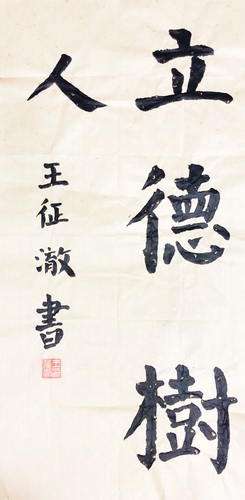 立德樹
人
王征澈書